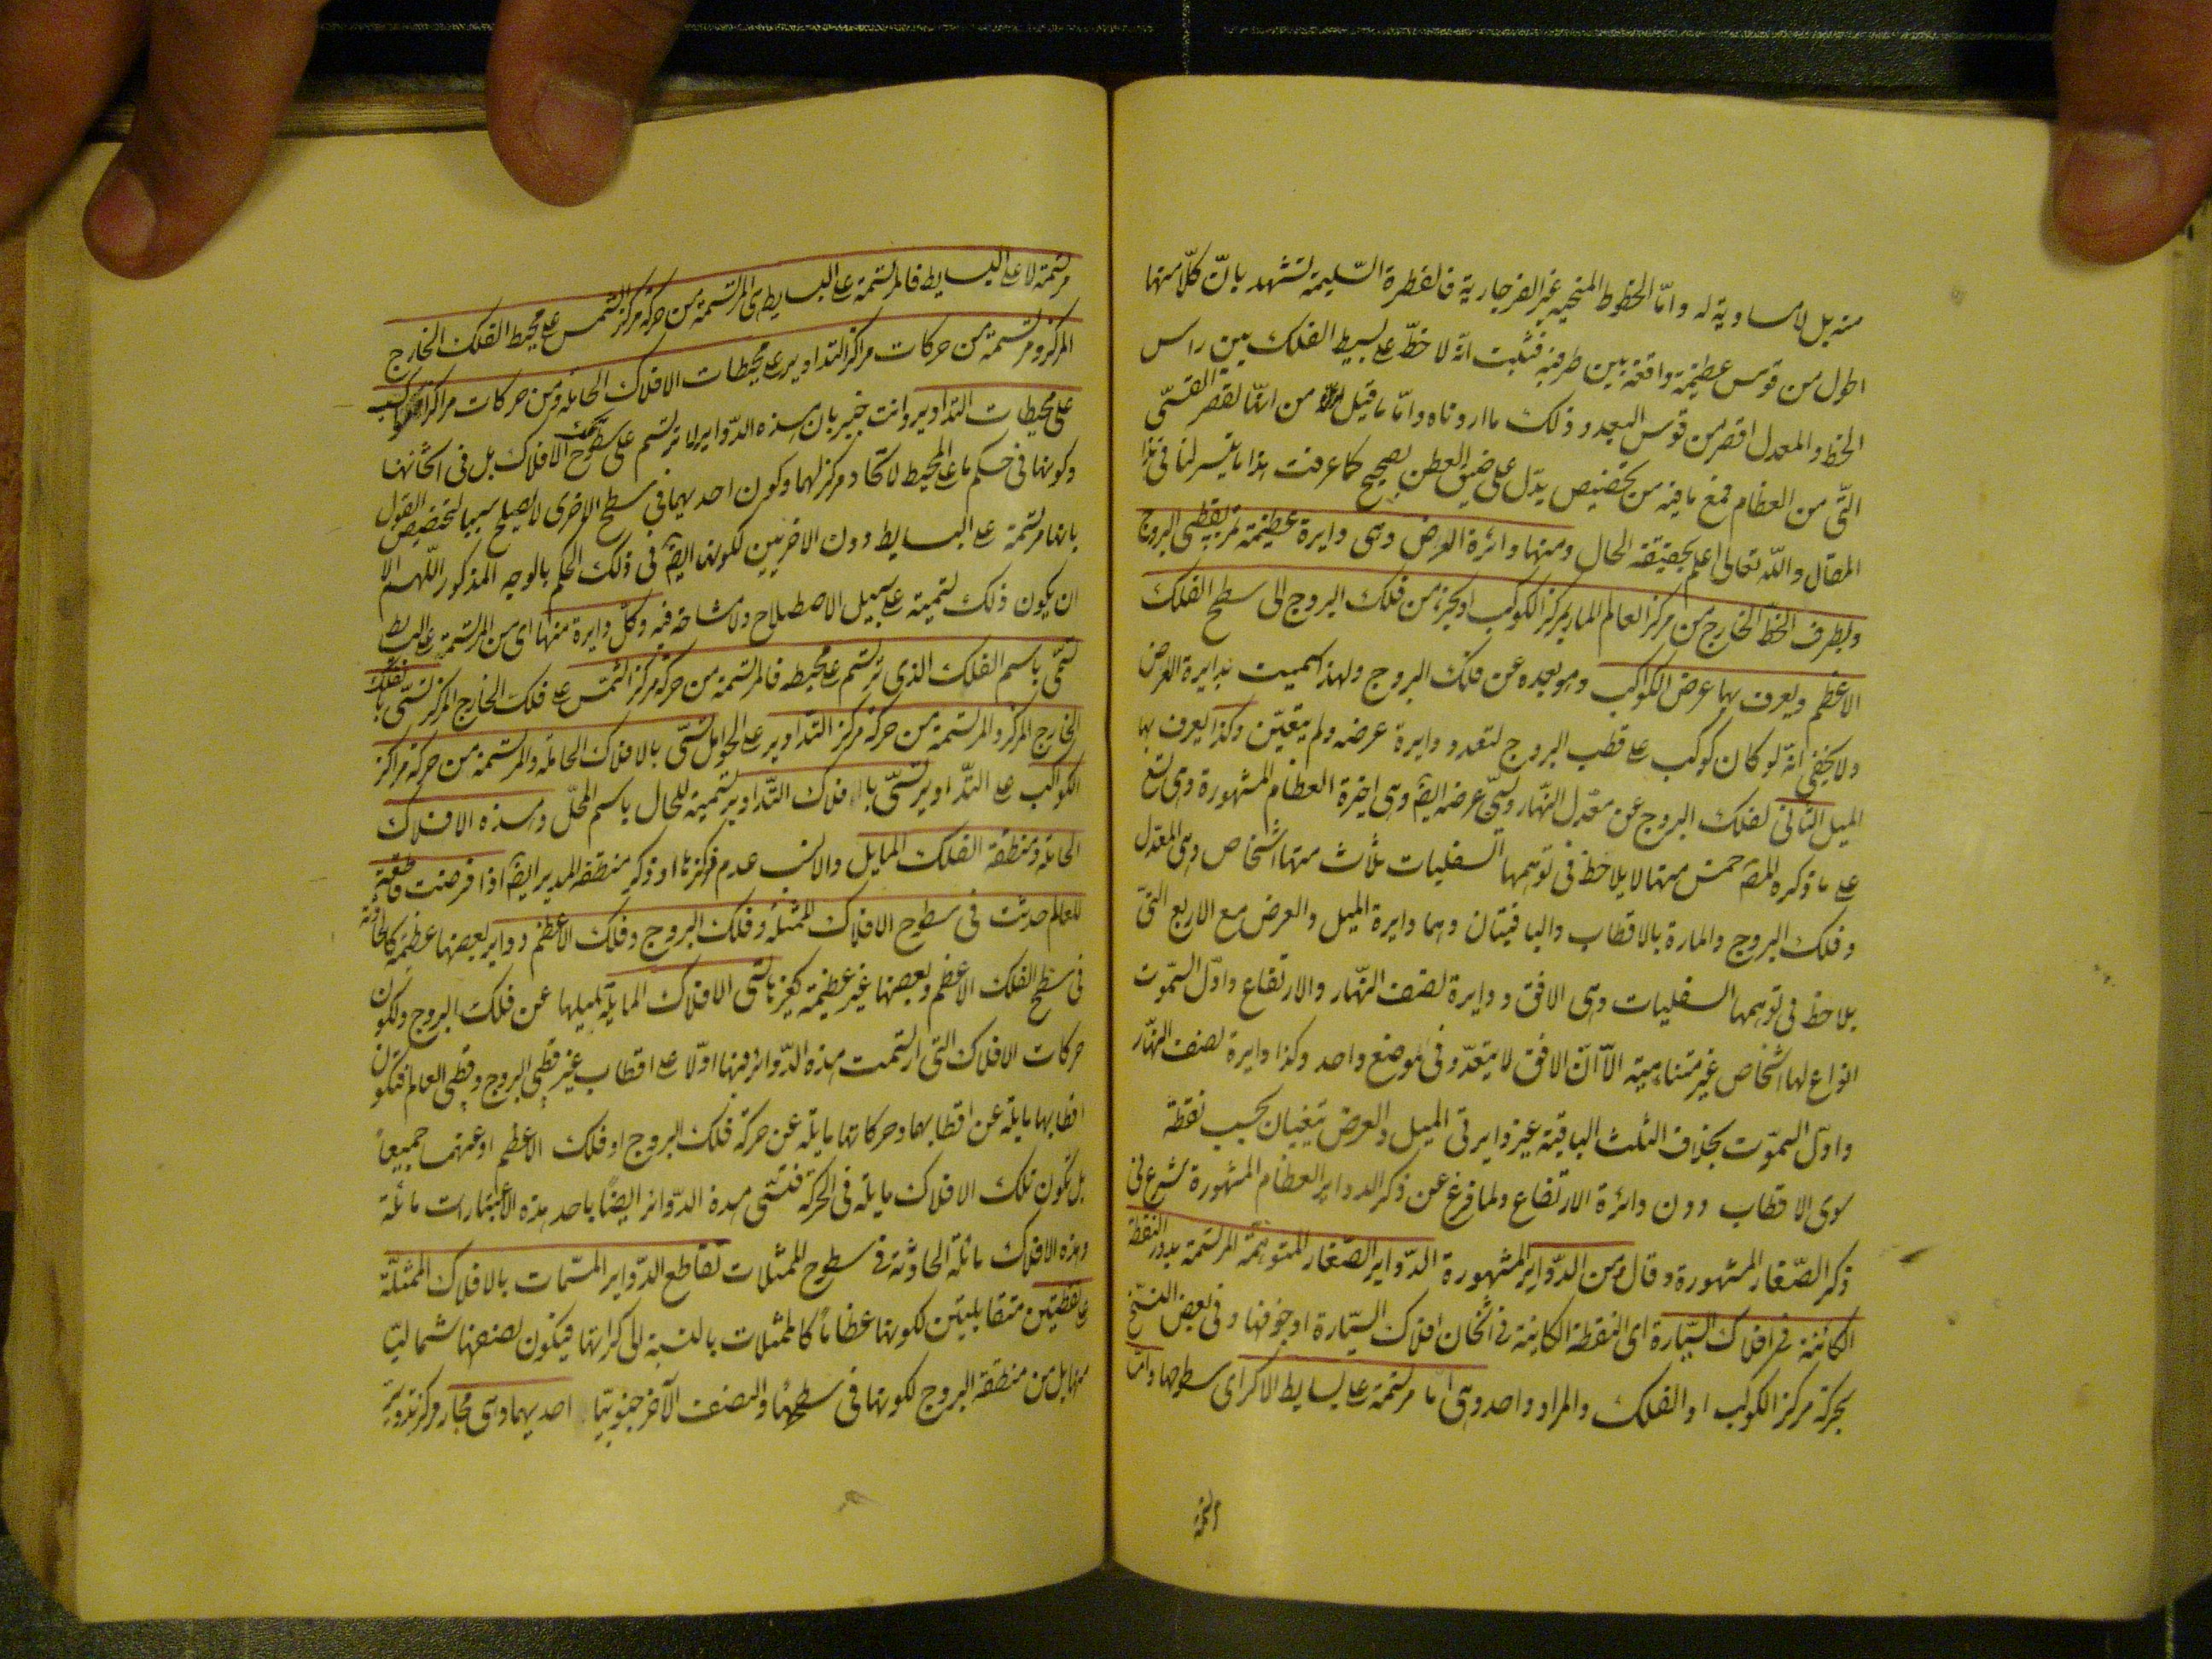 منه بل لا مساوية له واما الخطوط المنحنية غير الفرجارية فالفطرة السليمة تشهد بان كلا منها
اطول من قوس عظيمة واقعة بين طرفيه فثبت انه لا خط على بسيط الفلك بين راس
الخط والمعدل اقصر من قوس البعد وذلك ما اردناه واما ما قيل من انها اقصر القسى
التى من العظام فمع ما فيه من تخصيص يدل على ضيق العطن ليس بصحيح كما عرفت هذا ما تيسر لنا فى هذا
المقال والله تعالى اعلم بحقيقة الحال ومنها دائرة العرض وهى دايرة عظيمة تمر بقطبى البروج
وبطرف الخط الخارج من مركز العالم المار بمركز الكوكب او بجزء من فلك البروج الى سطح الفلك
الاعظم ويعرف بها عرض الكواكب وهو بعده عن فلك البروج ولهذا سميت بدايرة العرض
ولا يخفى انه لو كان كوكب على قطب البروج لتعدد دايرة عرضه ولم يتعين وكذا يعرف بها
الميل الثانى لفلك البروج عن معدل النهار ويسمى عرضه ايضا وهى اخرة العظام المشهورة وهى تسع
على ما ذكره المص خمس منها لا يلاحظ فى توهمها السفليات ثلاث منها اشخاص وهى المعدل
وفلك البروج والمارة بالاقطاب والباقيتان وهما دايرة الميل والعرض مع الاربع التى
يلاحظ فى توهمها السفليات وهى الافق ودايرة نصف النهار والارتفاع واول السموت
انواع لها اشخاص غير متناهية الا ان الافق لا يتعدد فى موضع واحد وكذا دايرة نصف النهار
واول السموت بخلاف الثلث الباقية غير دايرتى الميل والعرض تتغيران بحسب نقطة
سوى الاقطاب دون دائرة الارتفاع ولما فرغ عن ذكر الدواير العظام المشهورة شرع فى
ذكر الصغار المشهورة وقال ومن الدواير المشهورة الدواير الصغار المتوهمة المرتسمة بدور النقطة
الكائنة فى افلاك السيارة اى النقطة الكاينة فى اثخان افلاك السيارة او جوفها وفى بعض النسخ
بحركة مركز الكوكب او الفلك والمراد واحد وهى اما مرتسمة على بسايط الاكر اى سطوحها واما
مرتسمة لا على البسايط فالمرتسمة على البسايط هى المرتسمة من حركة مركز الشمس على محيط الفلك الخارج
المركز ومرتسمة من حركات مراكز التداوير على محيطات الافلاك الحاملة ومن حركات مراكز الكواكب
على محيطات التداوير وانت خبير بان هذه الدواير لا ترتسم على سطوح تلك الافلاك بل فى اثخانها
وكونها فى حكم ما على المحيط لاتحاد مركز لهما وكون احديهما فى سطح الاخرى لا يصلح سببا لتخصيص القول
بانها مرتسمة على البسايط دون الاخريين لكونها ايضا فى ذلك الحكم بالوجه المذكور اللهم الا
ان يكون ذلك تسمية على سبيل الاصطلاح ولا مشاحة فيه وكل دايرة منها اى من المرتسمة على البسايط
تسمى باسم الفلك الذى ترتسم على محيطه فالمرتسمة من حركة مركز الشمس على فلك الخارج المركز تسمى بالفلك
الخارج المركز والمرتسمة من حركة مركز التداوير على الحوامل تسمى بالافلاك الحاملة والمرتسمة من حركة مراكز
الكواكب على التداوير تسمى بالافلاك التداوير تسمية للحال باسم المحل وهذه الافلاك
الحاملة ومنطقة الفلك المايل والانسب عدم ذكرها او ذكر منطقة المدير ايضا اذا فرضت قاطعة
للعالم حدثت فى سطوح الافلاك الممثلة وفلك البروج وفلك الاعظم دواير بعضها عظيمة كالحادثة
فى سطح الفلك الاعظم وبعضها غير عظيمة كغيرها تسمى الافلاك المايلة لميلها عن فلك البروج ولكون
حركات الافلاك التى ارتسمت هذه الدوائر منها اولا على اقطاب غير قطبى البروج وقطبى العالم فتكون
اقطابها مايلة عن اقطابهما وحركاتها مايلة عن حركة فلك البروج او فلك الاعظم او عنهما جميعا
بل تكون تلك الافلاك مايلة فى الحركة فتسمى هذه الدوائر ايضا باحد هذه الاعتبارات مائلة
وهذه الافلاك مائلة الحادثة فى سطوح الممثلات تقاطع الدواير المسمات بالافلاك الممثلة
على نقطتين متقابليتن لكونها عظاما كالممثلات بالنسبة الى كراتها فيكون نصفها شماليا
منها بل من منطقة البروج لكونها فى سطحها والنصف الآخر جنوبيا احديهما وهى مجاز مركز تدوير